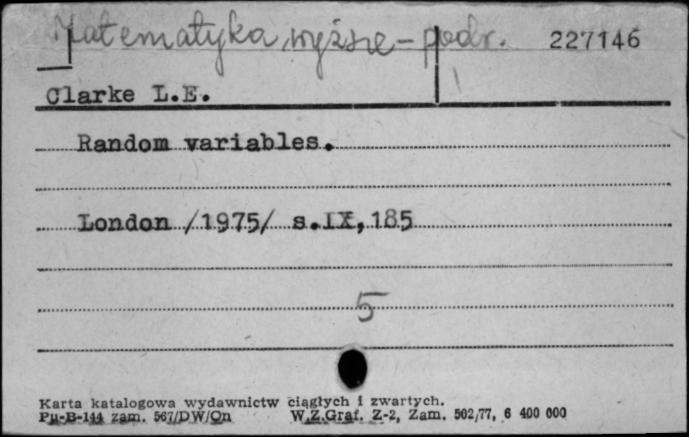 Matematyka wyższe - podr. 227146
Clarke L.E.
Random variables.
London /1975/ s.IX,185
5
Karta katalogowa wydawnictw ciągłych i zwartych.
Pu-B-144 zam. 567/DW/On W.Z.Graf. Z-2, Zam. 502/77, 6 400 000